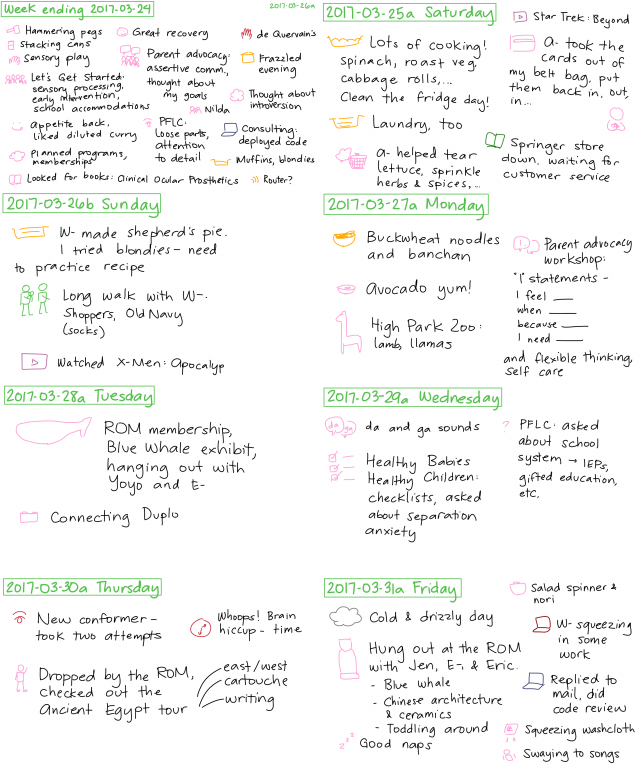 Week ending 2017-03-24
2017-03-26a
Hammering pegs
Stacking cans
Sensory play
Let's Get Started:
sensory processing,
early intervention,
school accommodations
appetite back,
liked diluted curry
Planned programs,
memberships
Looked for books: Clinical Ocular Prosthetics
Great recovery
Parent advocacy:
assertive comm.,
thought about
my goals
Nilda
PFLC:
Loose parts,
attention
to detail
de Quervain's
Frazzled
evening
Thought about
introversion
Consulting:
deployed code
Muffins, blondies
Router?
2017-03-25a Saturday
Lots of cooking!
Spinach, roast veg,
cabbage rolls,...
Clean the fridge day!
Laundry, too
A- helped tear
lettuce, sprinkle
herbs & spices,...
Star Trek: Beyond
A- took the
cards out of
my belt bag, put
them back in, out,
in...
Springer store
down, waiting for
customer service
2017-03-26b Sunday
W- made shepherd's pie.
I tried blondies - need
to practice recipe
Long walk with W-.
Shoppers, Old Navy
(socks)
Watched X-Men: Apocalyp
2017-03-27a Monday
Buckwheat noodles
and banchan
Avocado yum!
High Park Zoo:
lamb, llamas
Parent advocacy
workshop:
"I" statements -
I feel ___
when ___
because ___
I need ___
and flexible thinking,
self care
2017-03-28a Tuesday
ROM membership,
Blue Whale exhibit,
hanging out with
Yoyo and E-
Connecting Duplo
2017-03-29a Wednesday
da ga
da and ga sounds
Healthy Babies
Healthy Children:
checklists, asked
about separation
anxiety
? PFLC: asked
about school
system → IEPs,
gifted education,
etc.
2017-03-30a Thursday
New conformer -
took two attempts
Whoops! Brain
hiccup - time
Dropped by the ROM,
checked out the
Ancient Egypt tour
east/west
cartouche
writing
2017-03-31a Friday
Cold & drizzly day
Hung out at the ROM
with Jen, E-, & Eric.
- Blue whale
- Chinese architecture
& ceramics
- Toddling around
zzz Good naps
Salad spinner &
nori
W- squeezing
in some
work
Replied to
mail, did
code review
Squeezing washcloth
Swaying to songs